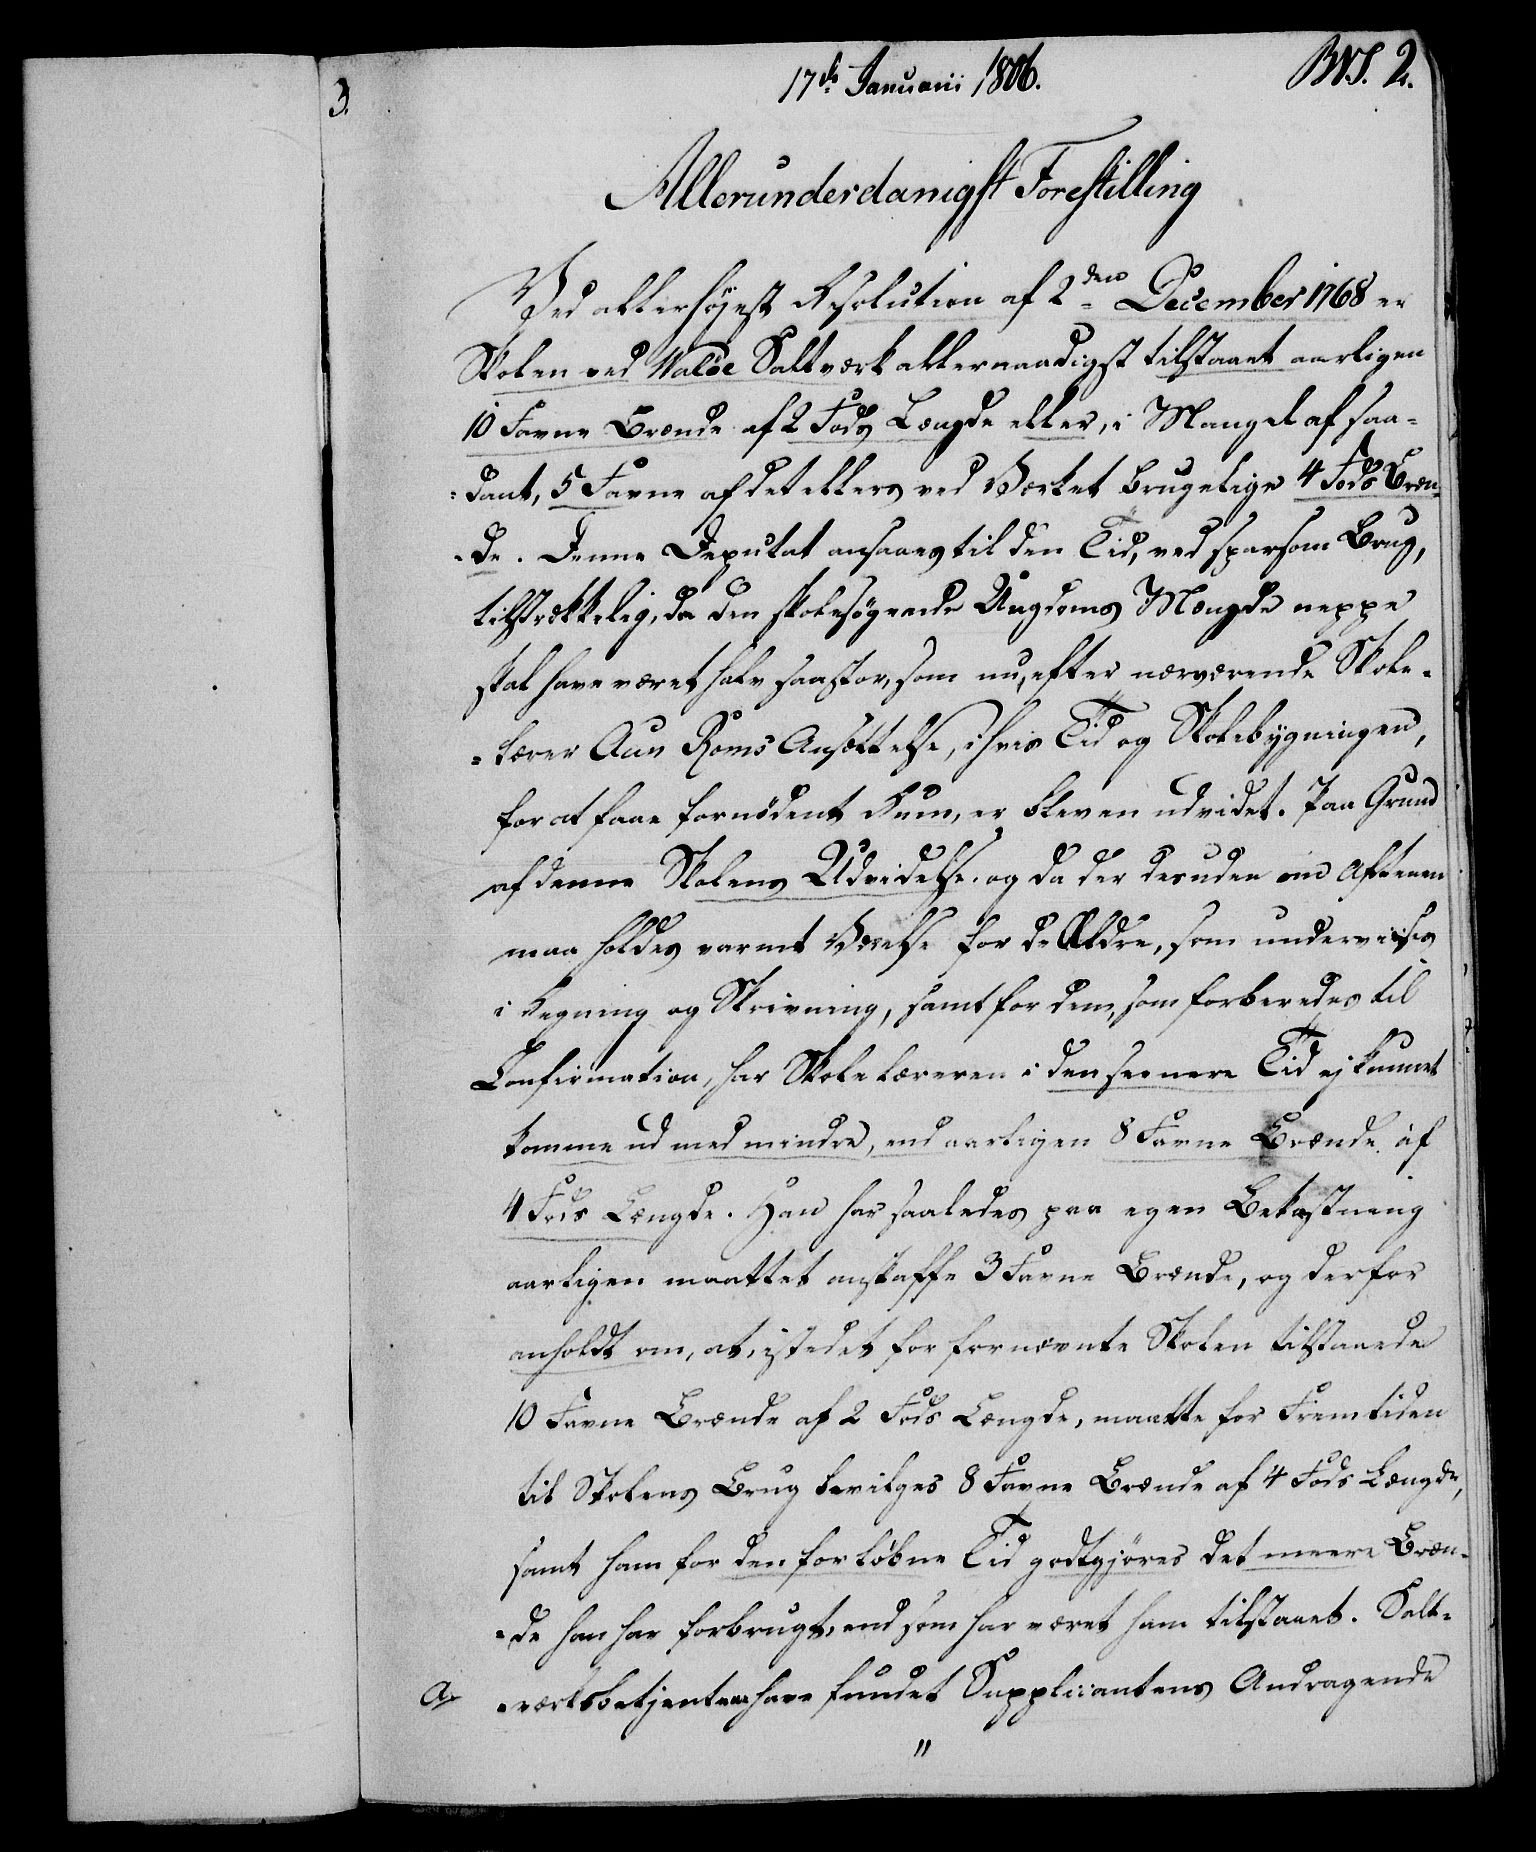 3.
17de Januarii 1806.
BV.J. 2.
Allerunderdanigst Forestilling
Ved allerhöjest Resolution af 2den December 1768 er
Skolen ved Walöe Saltværk allernaadigst tilstaaet aarligen
10 Favne Brænde af 2 Fods Længde eller, i Mangel af saa-
-dant, 5 Favne af det ellers ved Værket brugelige 4 Fods Bræn-
-de. Denne Deputat ansaaes til den Tid, ved sparsom Brug,
tilstrækkelig, da den skolesögende Ungdoms Mængde neppe
skal have været halv saa stor, som nu, efter nærværende Skole-
-lærer Aun Roms Ansættelse, i hvis Tid og Skolebygningen,
for at faae fornödent Rum, er bleven udvidet. Paa Grund
af denne Skolens Udvidelse. og da der desuden om Aftenen
maa holdes varmt Værelse for de Ældre, som underviises
i Regning og Skrivning, samt for dem, som forberedes til
Confirmation, har Skolelæreren i den seenere Tid ej kunnet
komme ud med mindre, end aarligen 8 Favne Brænde af
4 Fods Længde. Han har saaledes paa egen Bekostning
aarligen maattet anskaffe 3 Favne Brænde, og derfor
anholdt om, at, istedet for fornævnte Skolen tilstaaede
10 Favne Brænde af 2 Fods Længde, maatte for Fremtiden
til Skolens Brug bevilges 8 Favne Brænde af 4 Fods Længde,
samt ham for den forlöbne Tid godtgjöres det meere Bræn-
-de han har forbrugt, end som har været ham tilstaaet. Salt-
a. -værksbetjentene have fundet Supplicantens Andragende
"